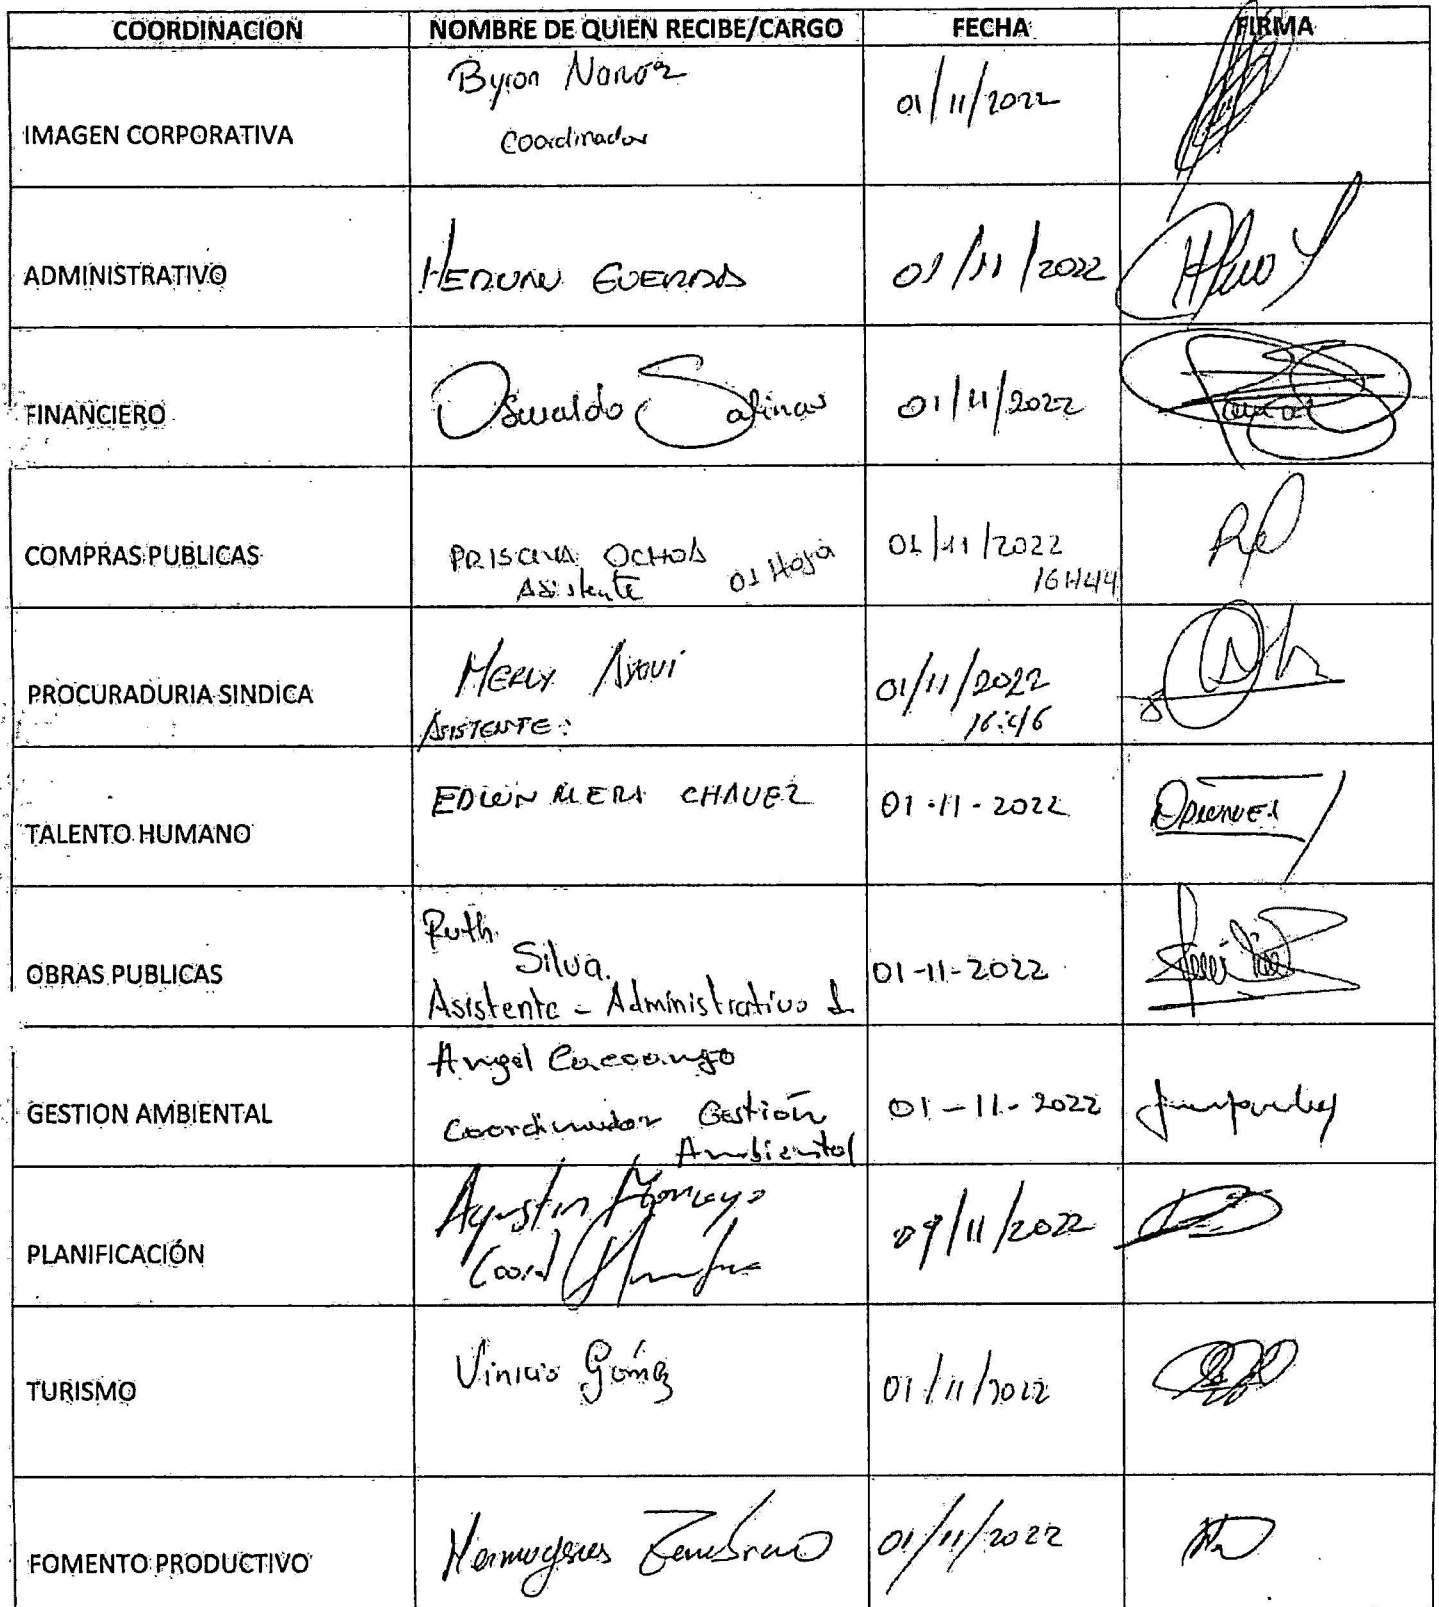 COORDINACION NOMBRE DE QUIEN RECIBE/CARGO FECHA FIRMA
IMAGEN CORPORATIVA Byron Narváz 01/11/2022
Coordinador
ADMINISTRATIVO HERNAN GUERRA 01/11/2022
FINANCIERO Oswaldo Salinas 01/11/2022
COMPRAS PUBLICAS PRISCILA OCHOA 01 Hoja 01/11/2022
Asistente 16H44
PROCURADURIA SINDICA MERLY 01/11/2022
ASISTENTE: 16:46
TALENTO HUMANO EDWIN MERA CHAVEZ 01-11-2022
OBRAS PUBLICAS Ruth
Silva. 01-11-2022
Asistente - Administrativo 1
GESTION AMBIENTAL Angel Cacoango
Coordinador Gestión 01-11-2022
Ambiental
PLANIFICACIÓN Agustin Moncayo 09/11/2022
Coord
TURISMO Vinicio Gómez 01/11/2022
FOMENTO PRODUCTIVO Hermogenes Zambrano 01/11/2022